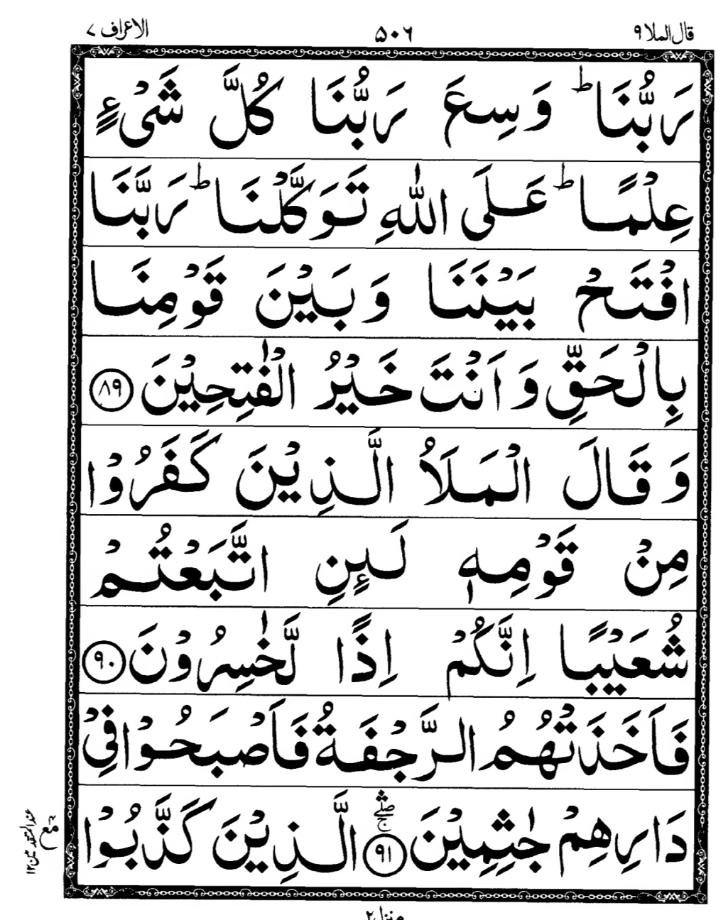 قال الملا ۹ ۵۰۶ الاعراف ۷
رَبُّنَا ؕ وَسِعَ رَبُّنَا كُلَّ شَیْءٍ
عِلْمًا ؕ عَلَی اللّٰهِ تَوَكَّلْنَا ؕ رَبَّنَا
افْتَحْ بَیْنَنَا وَبَیْنَ قَوْمِنَا
بِالْحَقِّ وَاَنْتَ خَیْرُ الْفٰتِحِیْنَ ﴿۸۹﴾
وَقَالَ الْمَلَاُ الَّذِیْنَ كَفَرُوْا
مِنْ قَوْمِهٖ لَىِٕنِ اتَّبَعْتُمْ
شُعَیْبًا اِنَّكُمْ اِذًا لَّخٰسِرُوْنَ ﴿۹۰﴾
فَاَخَذَتْهُمُ الرَّجْفَةُ فَاَصْبَحُوْا فِیْ
دَارِهِمْ جٰثِمِیْنَ ﴿۹۱﴾ۚۖ الَّذِیْنَ كَذَّبُوْا
منزل ۲